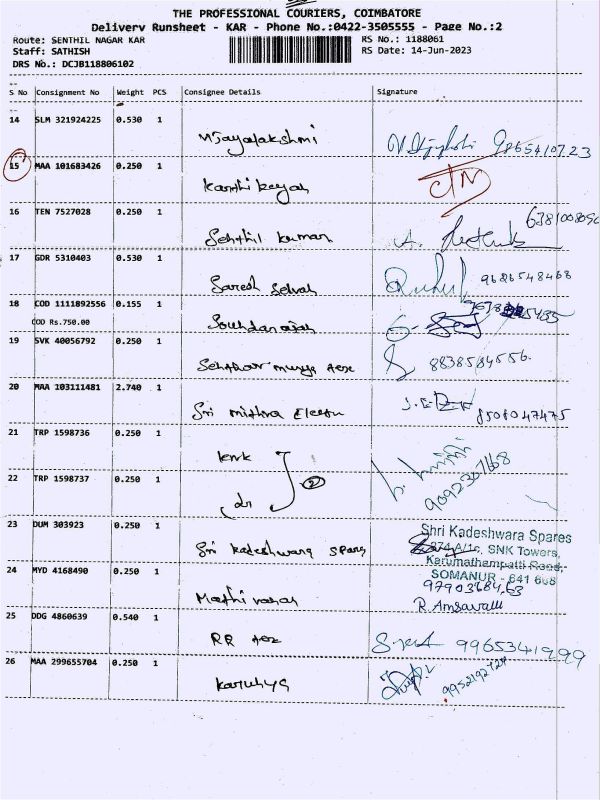 THE PROFESSIONAL COURIERS, COIMBATORE
Delivery Runsheet - KAR - Phone No.:0422-3505555 - Page No.:2
Route: SENTHIL NAGAR KAR
RS No.: 1188061
Staff: SATHISH
RS Date: 14-Jun-2023
DRS No.: DCJB118806102
S No Consignment No Weight PCS Consignee Details Signature
14 SLM 321924225 0.530 1
Vijayalakshmi 9865410723
15 MAA 101683426 0.250 1
Karthikeyan
16 TEN 7527028 0.250 1
Senthil kumar A.
17 GDR 5310403 0.530 1
Suresh Selvah 9686548468
18 COD 1111892556 0.155 1
COD Rs.750.00
19 SVK 40056792 0.250 1
8838584556
20 MAA 103111481 2.740 1
Sri mithra Electru 8508047475
21 TRP 1598736 0.250 1
22 TRP 1598737 0.250 1
do 2 9092367668
23 DUM 303923 0.250 1
Sri kadeshwara spares
Shri Kadeshwara Spares
874-A/1c, SNK Towers,
Karumathampatti Road,
SOMANUR - 641 668
24 MYD 4168490 0.250 1
Mathi vanan
R. Amsavalli
25 DDG 4860639 0.540 1
RR Aez 9965341999
26 MAA 299655704 0.250 1
Karunya 9952192724